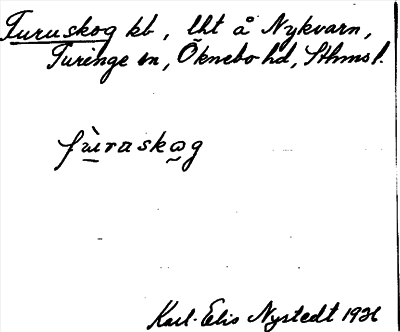 Furuskog kb, lht å Nykvarn,
Turinge sn, Öknebo hd, Sthms l.
Karl-Elis Nystedt 1936